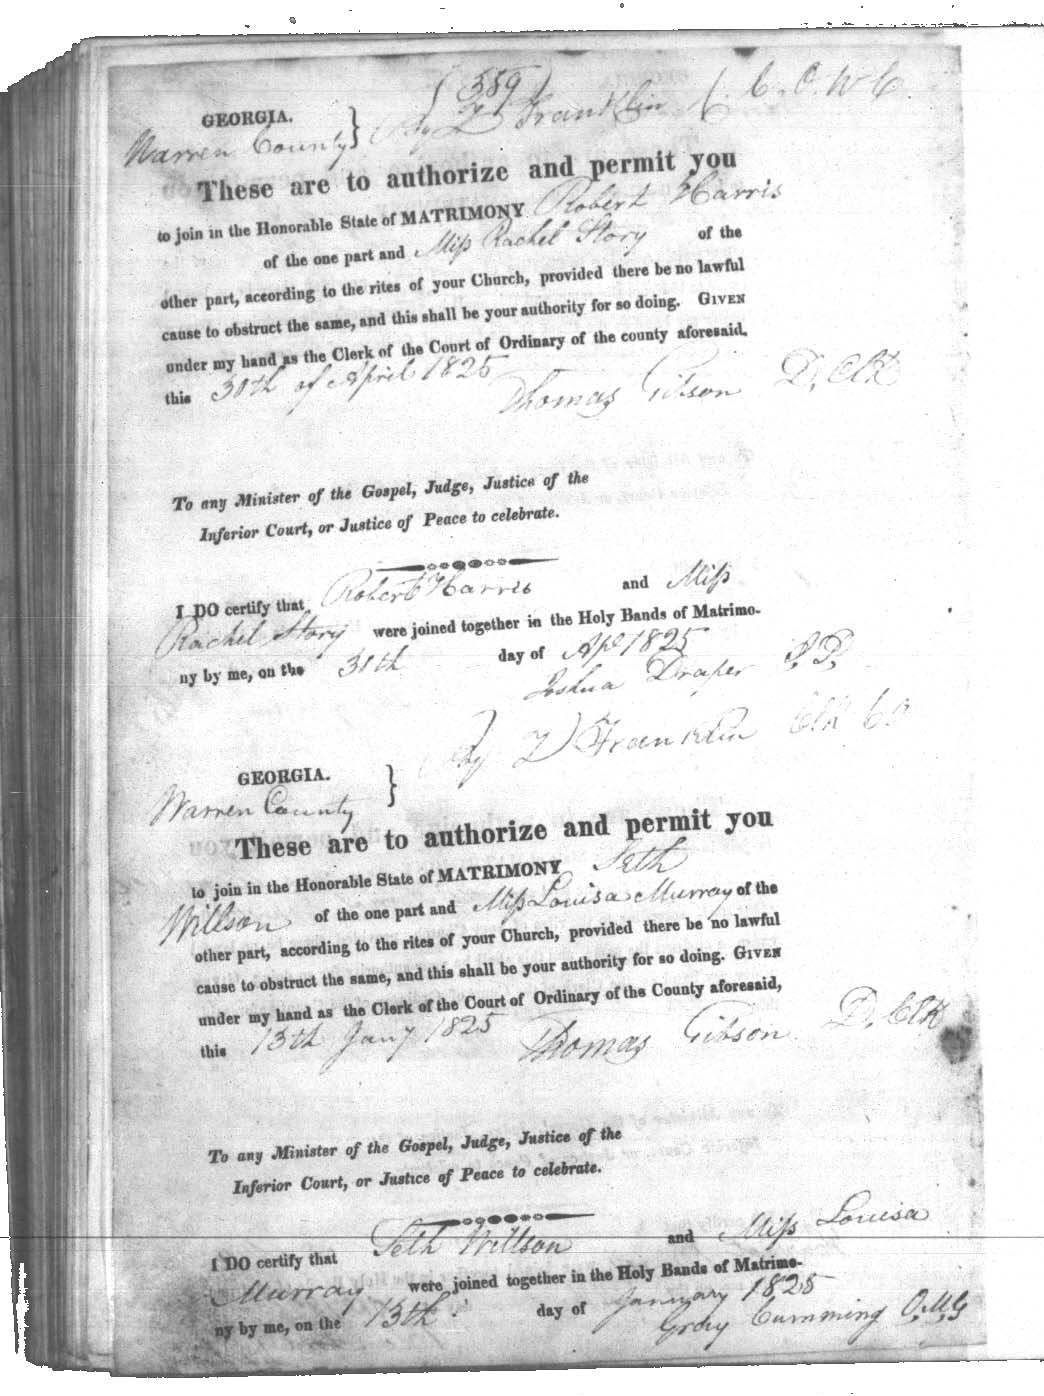 (389)
GEORGIA. } By Z Franklin C. C. O. W C.
Warren County
These are to authorize and permit you
to join in the Honorable State of MATRIMONY Robert Harris
of the one part and Miss Rachel Story of the
other part, according to the rites of your Church, provided there be no lawful
cause to obstruct the same, and this shall be your authority for so doing. GIVEN
under my hand as the Clerk of the Court of Ordinary of the county aforesaid.
this 30th of April 1825
Thomas Gibson D. Clk
To any Minister of the Gospel, Judge, Justice of the
Inferior Court, or Justice of Peace to celebrate.
I DO certify that Robert Harris and Miss
Rachel Story were joined together in the Holy Bands of Matrimo-
ny by me, on the 30th day of Apl 1825
Joshua Draper J.P.
By Z Franklin Clk
GEORGIA. }
Warren County
These are to authorize and permit you
to join in the Honorable State of MATRIMONY Seth
Willson of the one part and Miss Louisa Murray of the
other part, according to the rites of your Church, provided there be no lawful
cause to obstruct the same, and this shall be your authority for so doing. GIVEN
under my hand as the Clerk of the Court of Ordinary of the County aforesaid,
this 13th Jany 1825 Thomas Gibson D. Clk
To any Minister of the Gospel, Judge, Justice of the
Inferior Court, or Justice of Peace to celebrate.
I DO certify that Seth Willson and Miss Louisa
Murray were joined together in the Holy Bands of Matrimo-
ny by me, on the 13th day of January 1825
Gray Cumming O.M.G